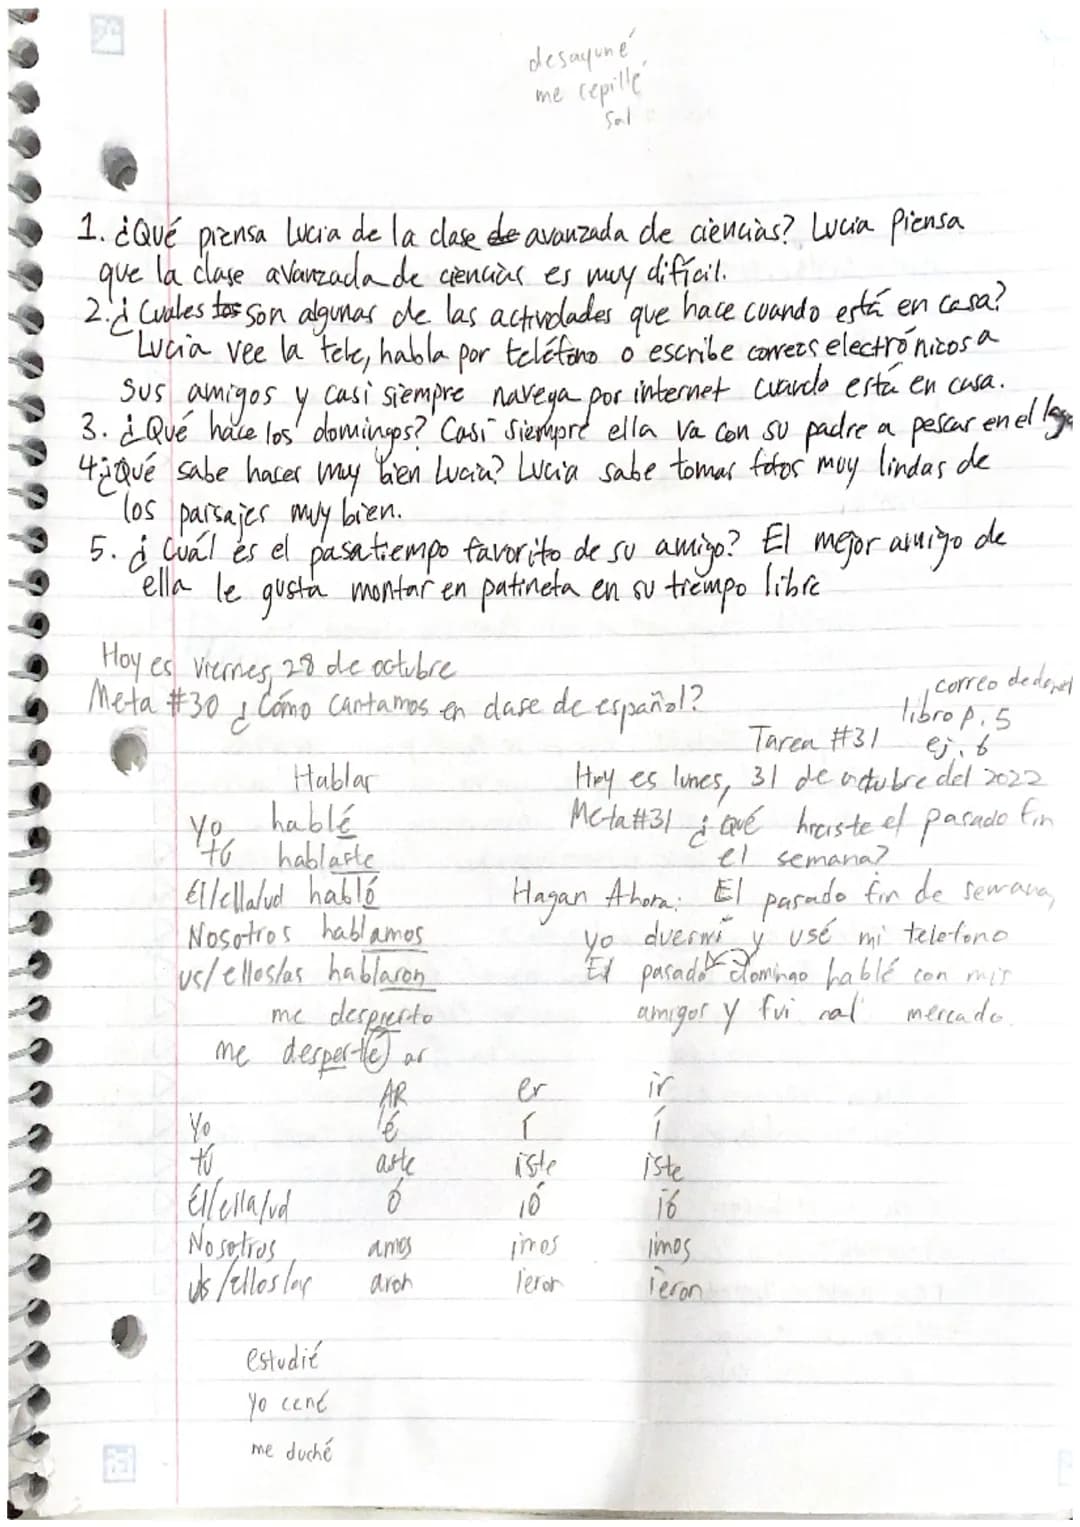 desayuné
me cepillé
sal
1. ¿Qué piensa Lucia de la clase de avanzada de ciencias? Lucia Piensa
que la clase avanzada de ciencias es muy difícil.
2. ¿Cuales son algunas de las actividades que hace cuando está en casa?
Lucia vee la tele, habla por teléfono o escribe correos electrónicos a
sus amigos y casi siempre navega por internet cuando está en casa.
3. ¿Qué hace los domingos? Casi siempre ella va con su padre a pescar en el lago
4. ¿Qué sabe hacer muy bien Lucia? Lucia sabe tomar fotos muy lindas de
los paisajes muy bien.
5. ¿Cuál es el pasatiempo favorito de su amigo? El mejor amigo de
ella le gusta montar en patineta en su tiempo libre
Hoy es viernes, 28 de octubre
Meta #30 ¿Cómo cantamos en clase de español?
correo de
libro p. 5
Tarea #31 ej. 6
Hablar
Yo hablé
tú hablaste
Él/ella/ud habló
Nosotros hablamos
us/ellos/as hablaron
me despierto
me desperté ar
Hoy es lunes, 31 de octubre del 2022
Meta #31 ¿Qué hiciste el pasado fin
el semana?
Hagan Ahora: El pasado fin de semana,
yo duermi y usé mi telefono
El pasado domingo hablé con mis
amigos y fui al mercado.
AR er ir
Yo é í í
tú aste iste iste
Él/ella/ud ó ió ió
Nosotros amos imos imos
us/ellos/as aron ieron ieron
estudié
yo cené
me duché